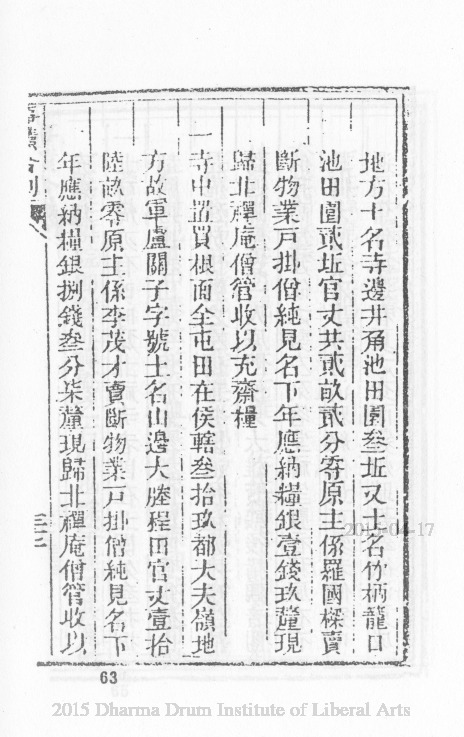 地方土名寺邊井角池田園叁坵又土名竹柄龍口
池田園貳坵官丈共貳畝貳分零原主係羅國樑賣
斷物業戶掛僧純見名下年應納糧銀壹錢玖釐現
歸北禪庵僧管收以充齋糧
一寺中置買根面全屯田在侯轄叁拾玖都大夫嶺地
方故軍盧關子字號土名山邊大墘程田官丈壹拾
陸畝零原主係李茂才賣斷物業戶掛僧純見名下
年應納糧銀捌錢叁分柒釐現歸北禪庵僧管收以
三十二
2015-04-17
63
2015 Dharma Drum Institute of Liberal Arts